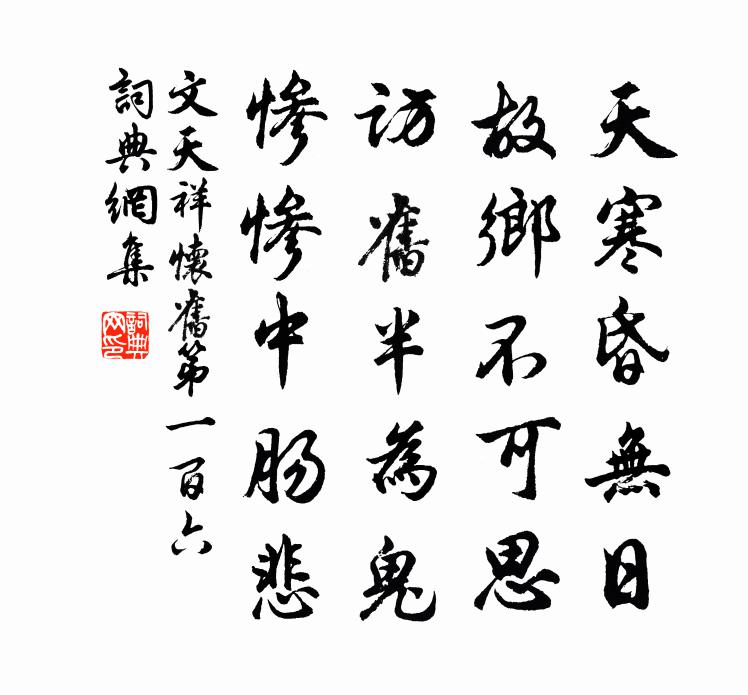 天寒昏無日
故鄉不可思
訪舊半為鬼
慘慘中腸悲
文天祥懷舊第一百六
詞典網集
詞典网印